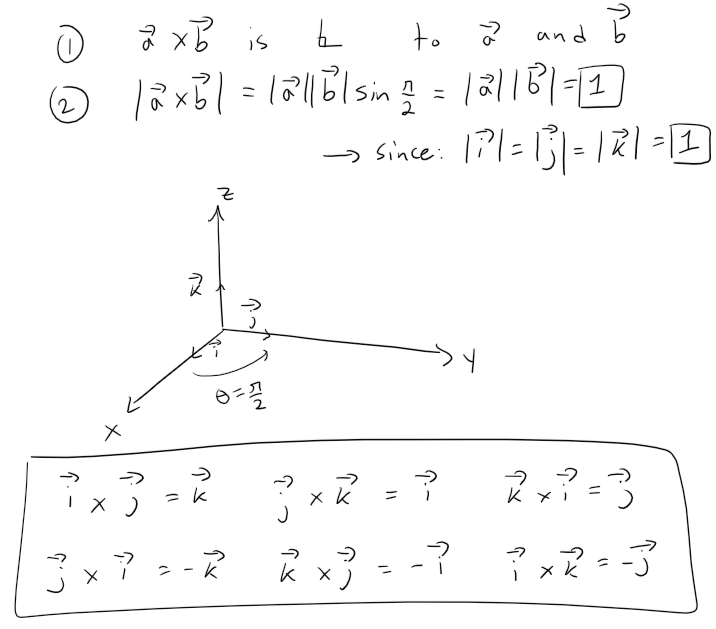 ① a⃗ × b⃗ is ⊥ to a⃗ and b⃗
② |a⃗ × b⃗| = |a⃗||b⃗| sin π/2 = |a⃗||b⃗| = 1
→ since: |i⃗| = |j⃗| = |k⃗| = 1
z
k⃗
j⃗
i⃗
y
θ = π/2
x
i⃗ × j⃗ = k⃗ j⃗ × k⃗ = i⃗ k⃗ × i⃗ = j⃗
j⃗ × i⃗ = -k⃗ k⃗ × j⃗ = -i⃗ i⃗ × k⃗ = -j⃗